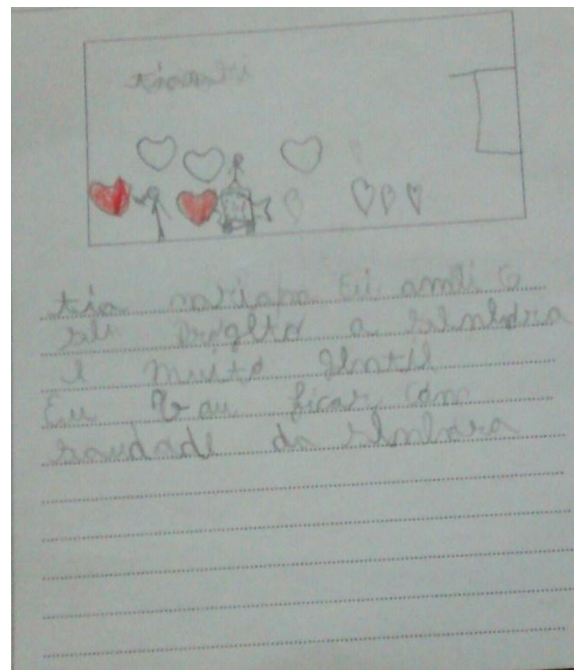 tia mariana Eu amei o
seu progeto a senhora
e muito gentil
Eu vou ficar com
saudade da senhora